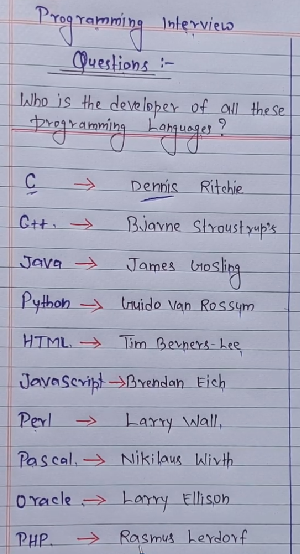 Programming Interview
Questions :-
Who is the developer of all these
Programming Languages?
C → Dennis Ritchie
C++. → Bjarne Stroustrup's
Java → James Gosling
Python → Guido Van Rossym
HTML. → Tim Berners-Lee,
JavaScript → Brendan Eich
Perl → Larry Wall,
Pascal. → Nikilaus Wirth
Oracle. → Larry Ellison
PHP. → Rasmus Lerdorf